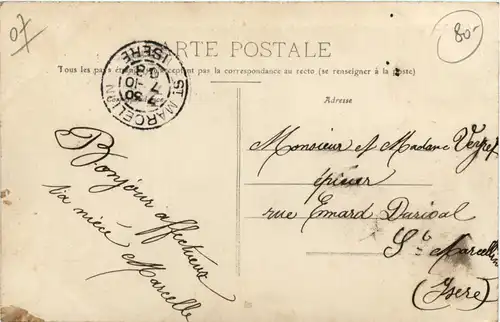 07
80-
CARTE POSTALE
Tous les pays étrangers n'acceptant pas la correspondance au recto (se renseigner à la poste)
Adresse
ST MARCELLIN
ISÈRE
7 30
7 -10
08
Bonjour affectueux
ta nièce Marcelle
Monsieur et Madame Veyret
épicier
rue Emard Durival
St Marcellin
(Isère)